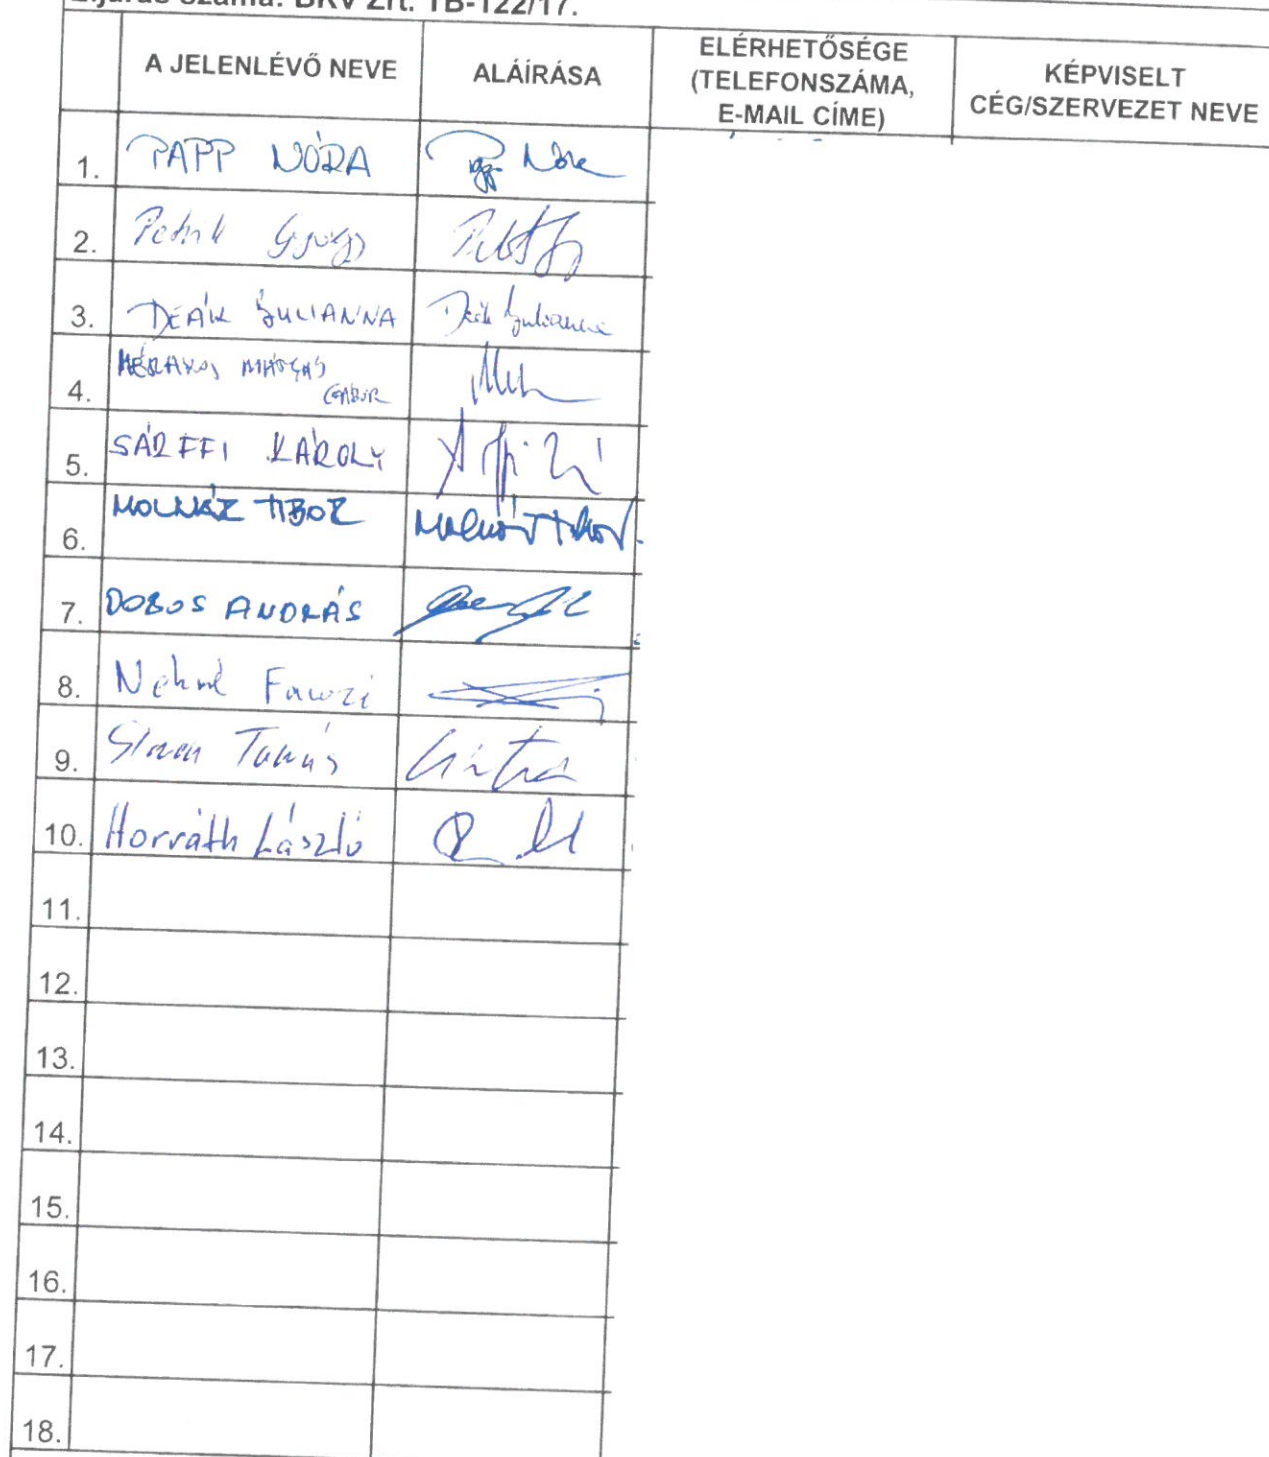 Eljárás száma: BKV Zrt. TB-122/17.
A JELENLÉVŐ NEVE
ALÁÍRÁSA
ELÉRHETŐSÉGE
(TELEFONSZÁMA,
E-MAIL CÍME)
KÉPVISELT
CÉG/SZERVEZET NEVE
1. PAPP NÓRA Papp Nóra
2.
3. DEÁK JULIANNA Deák Julianna
4. MÁTYÁS
GÁBOR
5. SÁRFFI KÁROLY
6. MOLNÁR TIBOR Molnár Tibor
7. DOBOS ANDRÁS
8. Fawzi
9. Simon Tamás
10. Horváth László
11.
12.
13.
14.
15.
16.
17.
18.